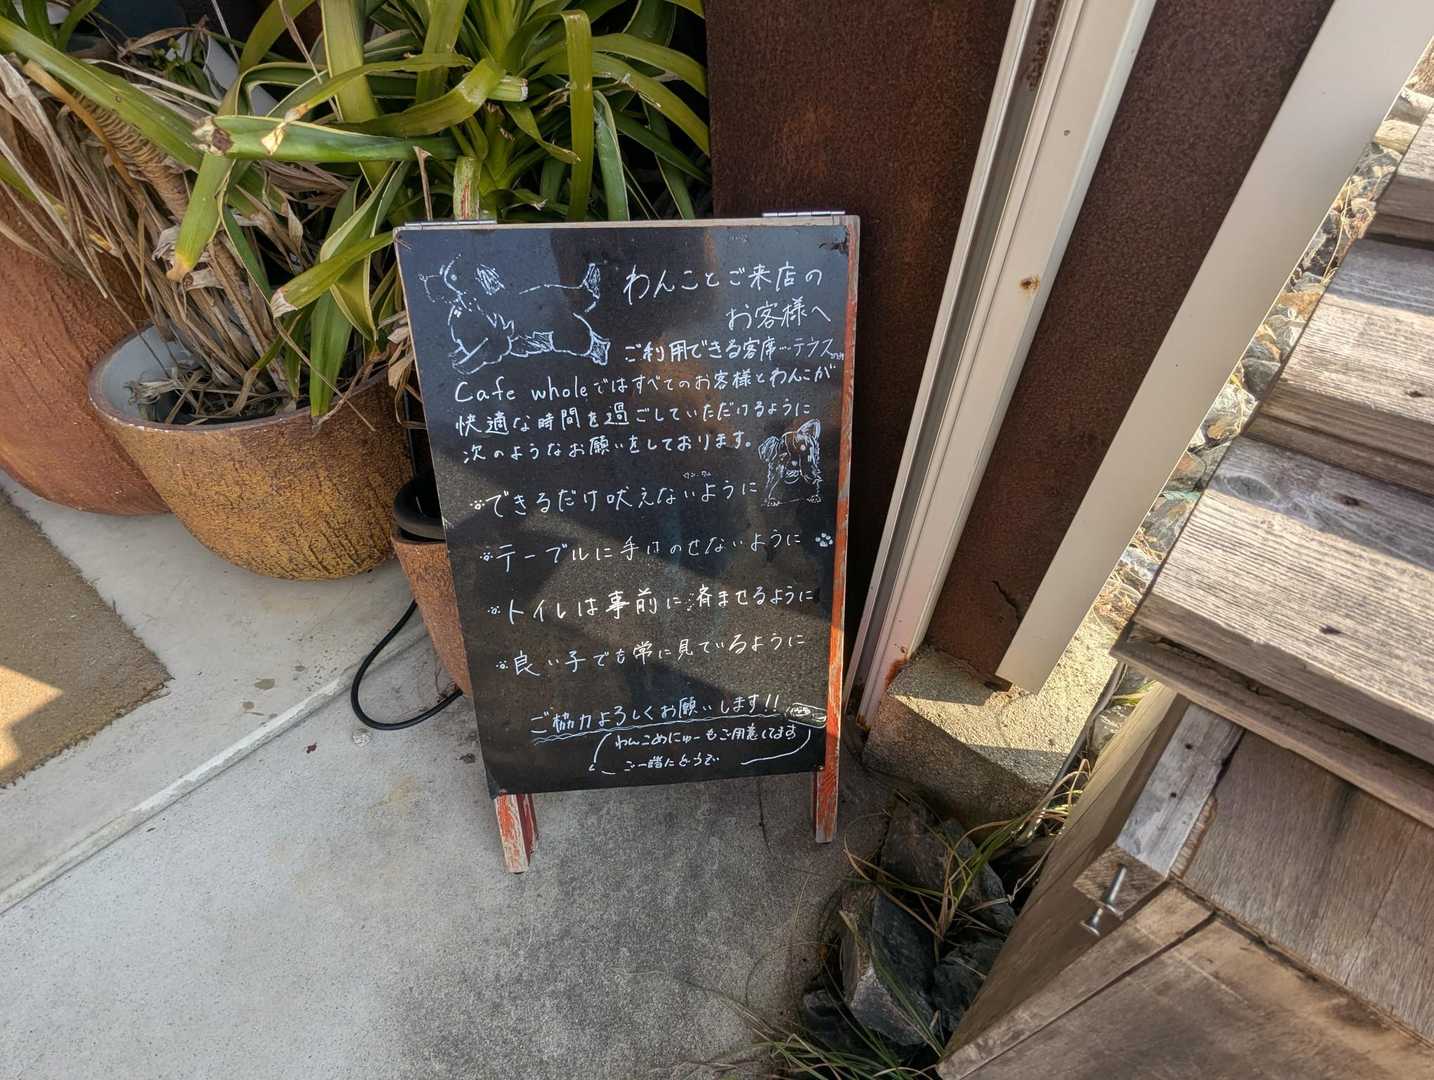 わんことご来店の
お客様へ
ご利用できる客席…テラス
Cafe wholeではすべてのお客様とわんこが
快適な時間を過ごしていただけるように
次のようなお願いをしております。
できるだけ吠えないように
テーブルに手はのせないように
トイレは事前に済ませるように
良い子でも常に見ているように
ご協力よろしくお願いします!!
わんこめにゅーもご用意してます
ご一緒にどうぞ